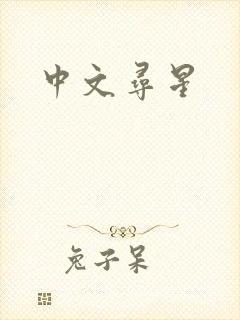 中文尋星
兔子呆